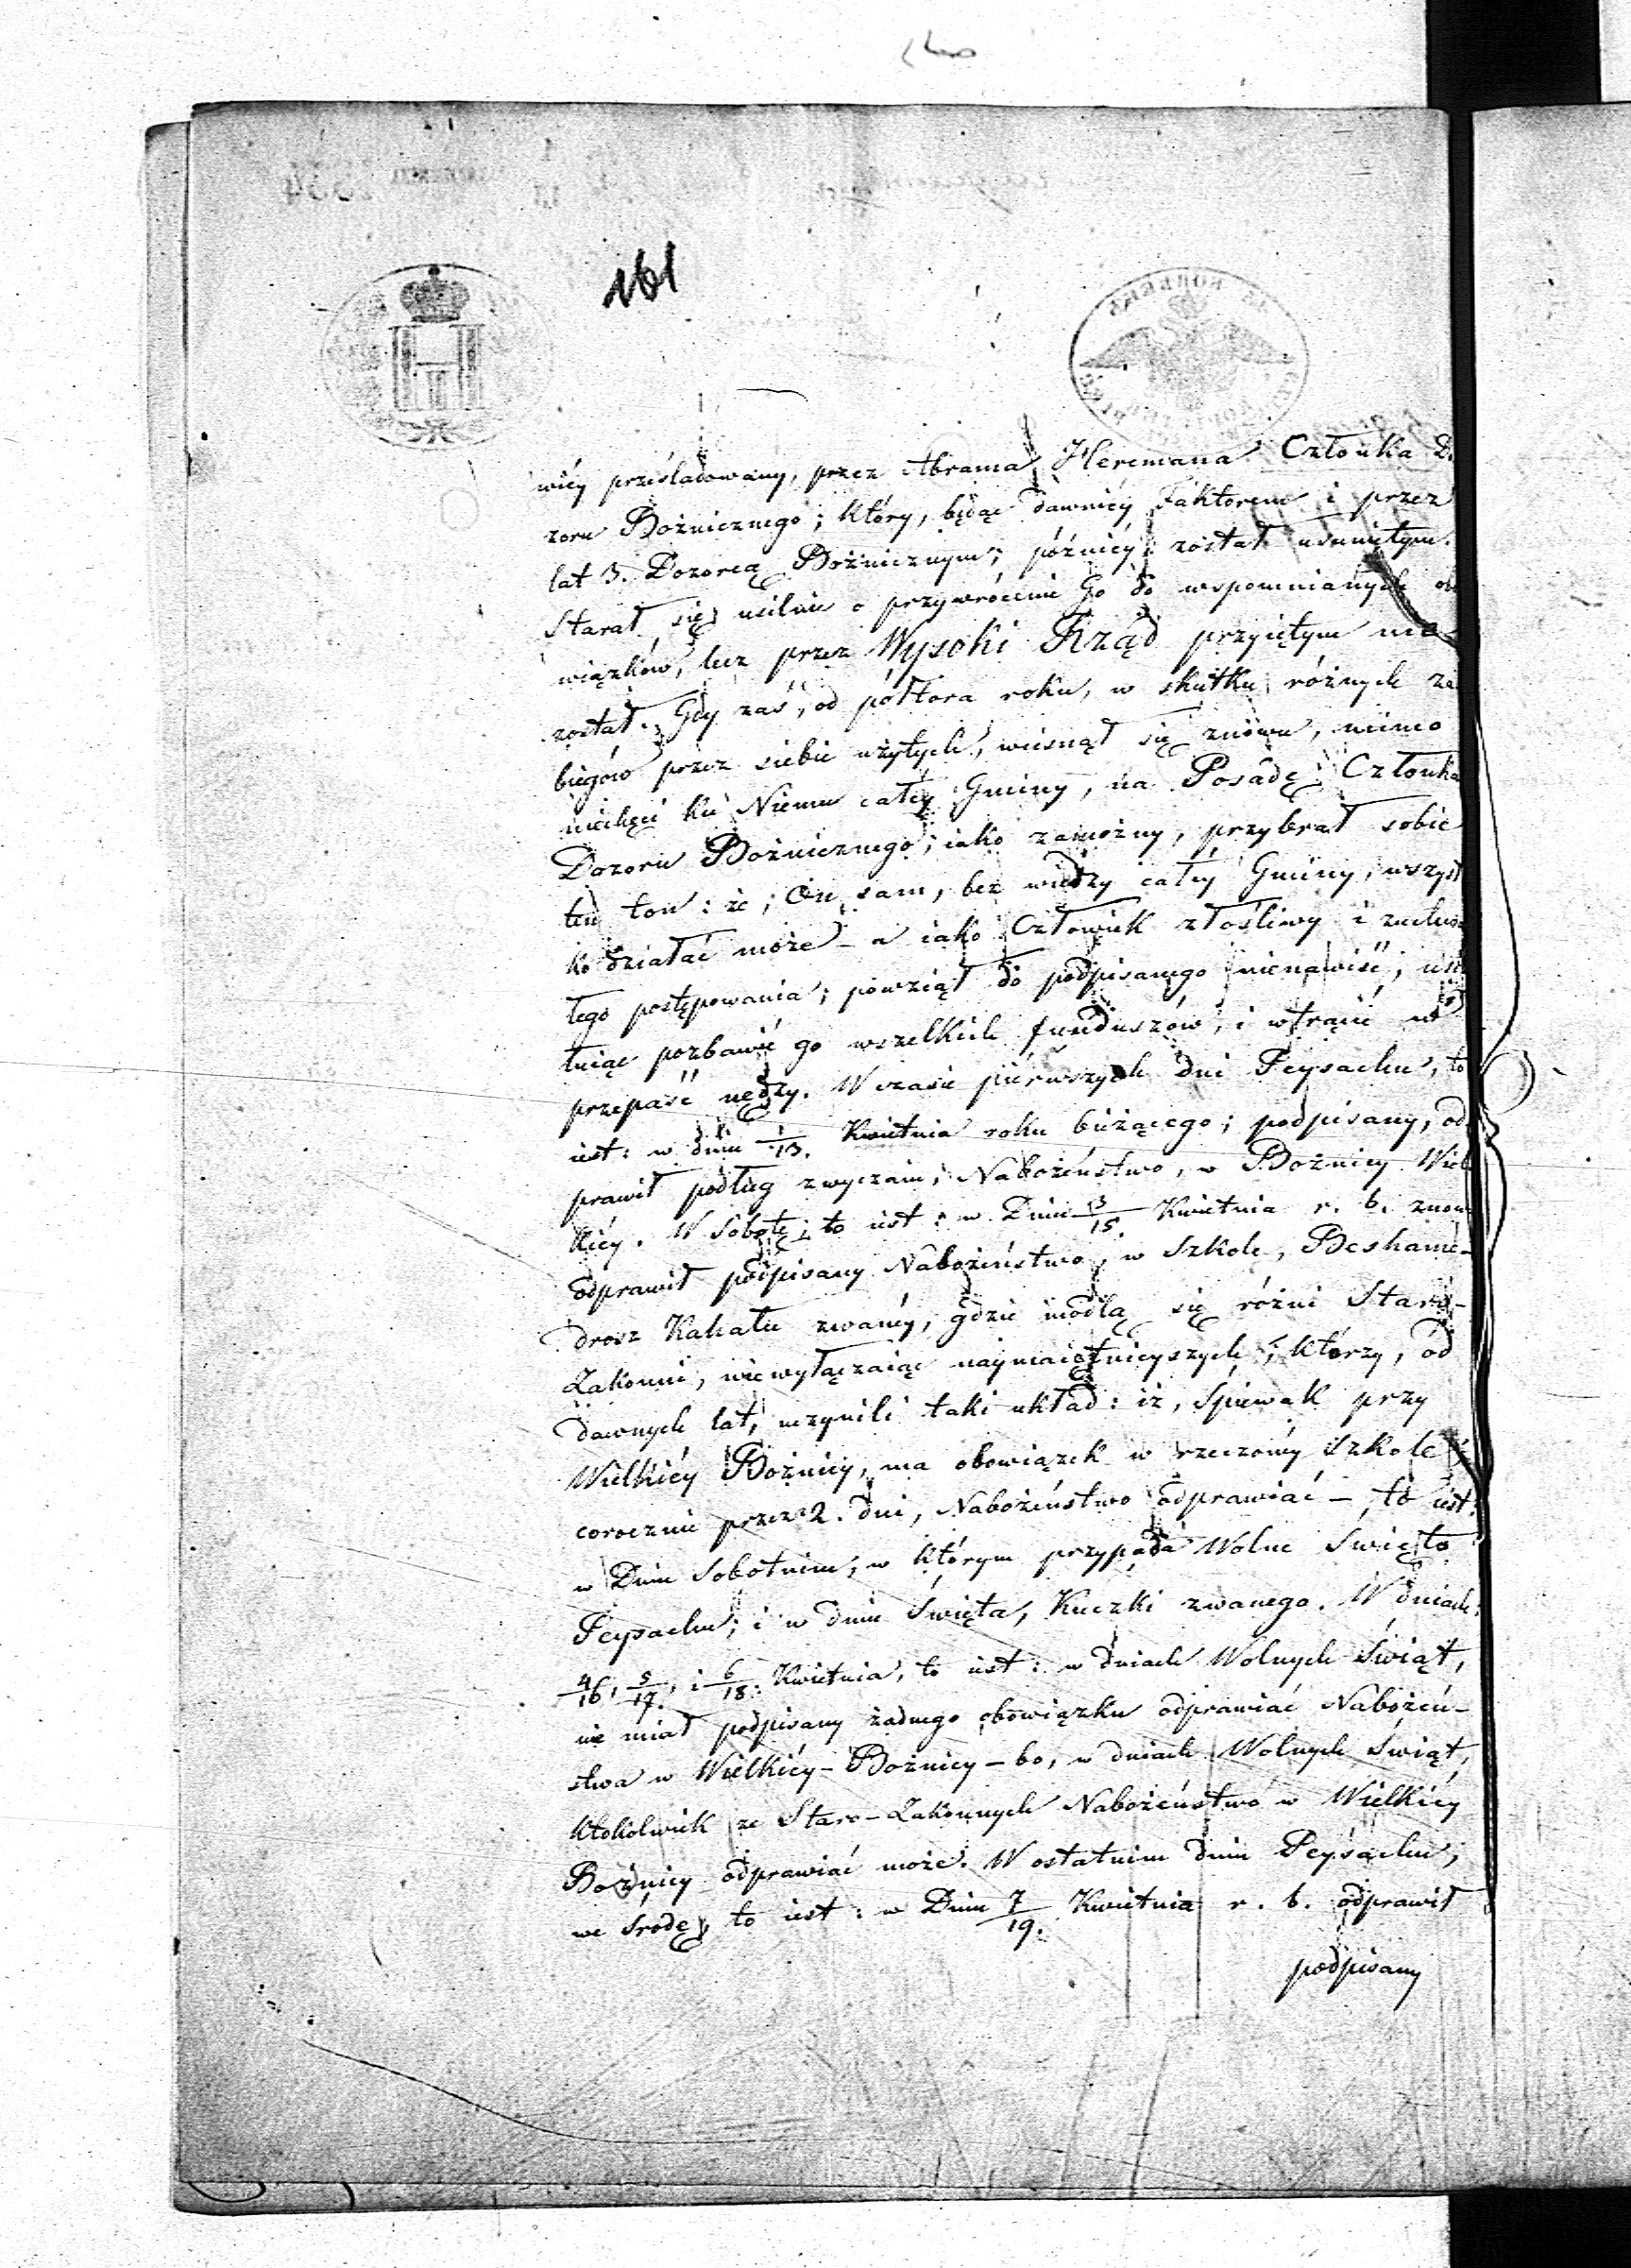 161
wićy prześladowany, przez Abrama Heremana Członka D
zoru Bożnicznego; który, będąc dawnićy Faktorem i przez
lat 3. Dozorcą Bożnicznym; późnićy został usuniętym.
Starał się usilnie o przywrócenie Go do wspomnianych ob
wiązków, lecz przez Wysoki Rząd przyiętym nie
został. Gdy zaś, od półtora roku, w skutku różnych za
biegów przez siebie użytych, wcisnął się znowu, mimo
niechęci ku Niemu całéy Gminy, na Posadę Członka
Dozoru Bożnicznego; iako zamożny, przybrał sobie
ten ton: że, On sam, bez wiedzy całéy Gminy, wszyst
ko działać może – a iako Człowiek złośliwy i zuchwa
łego postępowania; powziął do podpisanego nienawiść, usi
łuiąc pozbawić go wszelkich funduszów, i wtrącić w
przepaść nędzy. W czasie piérwszych dni Peysachu, to
iest: w dniu 1/13. Kwietnia roku bieżącego; podpisany, od
prawił podług zwyczaiu, Nabożeństwo, w Bożnicy Wiel
kiéy. W Sobotę, to iest: w Dniu 3/15 Kwietnia r. b. znow
odprawił podpisany Nabożeństwo, w Szkole, Beshame-
drosz Kahału zwanéy, gdzie modlą się różni Staro-
Zakonni, niewyłączaiąc naymaiętnieyszych; którzy, od
dawnych lat, uczynili taki układ: iż, Śpiewak przy
Wielkiéy Bożnicy, ma obowiązek w rzeczonéy Szkole
corocznie przez 2. dni, Nabożeństwo odprawiać – to iest:
w Dniu Sobotnim, w którym przypada Wolne Święto
Peysachu; i w dniu Święta, Kuczki zwanego. W dniach:
4/16, 5/17, i 6/18. Kwietnia, to iest: w dniach Wolnych Świąt,
nie miał podpisany żadnego obowiązku odprawiać Nabożeń-
stwa w Wielkiéy – Bożnicy – bo, w dniach Wolnych Świąt,
ktokolwiek ze Staro-Zakonnych Nabożeństwo w Wielkiéy
Bożnicy odprawiać może. W ostatnim dniu Peysachu,
we Środę, to iest: w Dniu 7/19. Kwietnia r. b. odprawił
podpisany